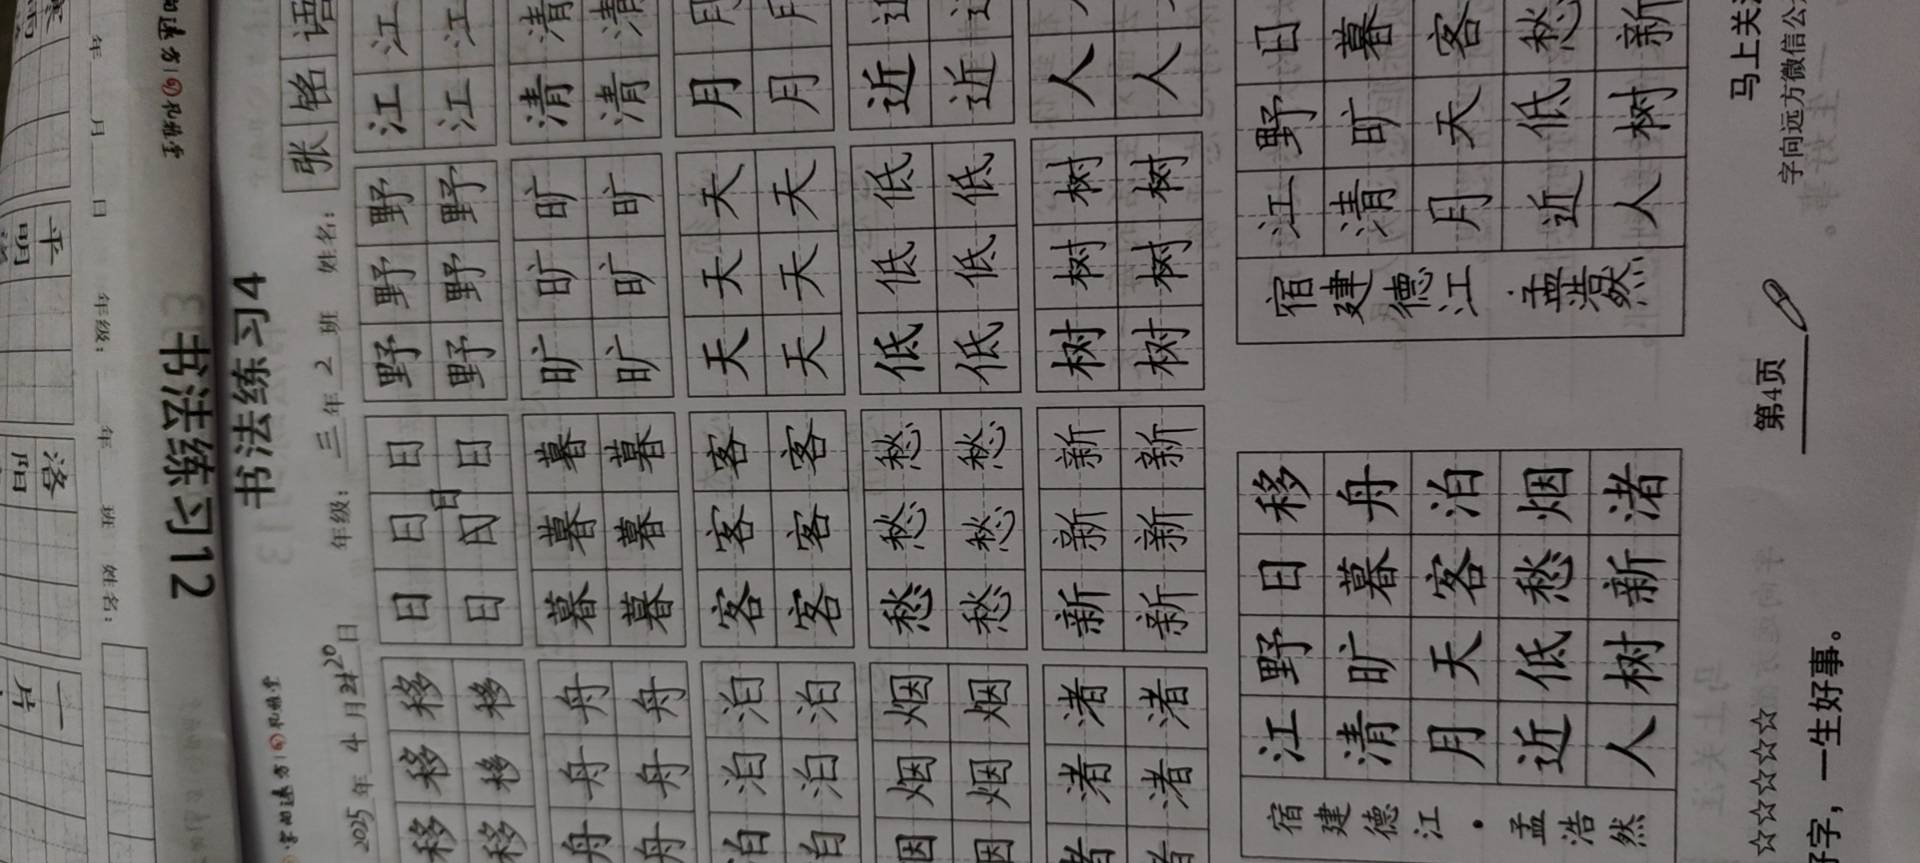 书法练习12
年级：年班 姓名：
年月日
书法练习4
2025年4月20日 年级：三年2班 姓名：张铭语
移移移日日日野野野江江
移移移日日日野野野江江
舟舟舟暮暮暮旷旷旷清清
舟舟舟暮暮暮旷旷旷清清
泊泊泊客客客天天天月月
泊泊泊客客客天天天月月
烟烟烟愁愁愁低低低近近
烟烟烟愁愁愁低低低近近
渚渚渚新新新树树树人人
渚渚渚新新新树树树人人
宿建德江·孟浩然
江野日移
清旷暮舟
月天客泊
近低愁烟
人树新渚
宿建德江 孟浩然
江野日
清旷暮
月天客
近低愁
人树新
☆☆☆☆☆☆☆
第4页
马上关
字向远方微信公
字，一生好事。